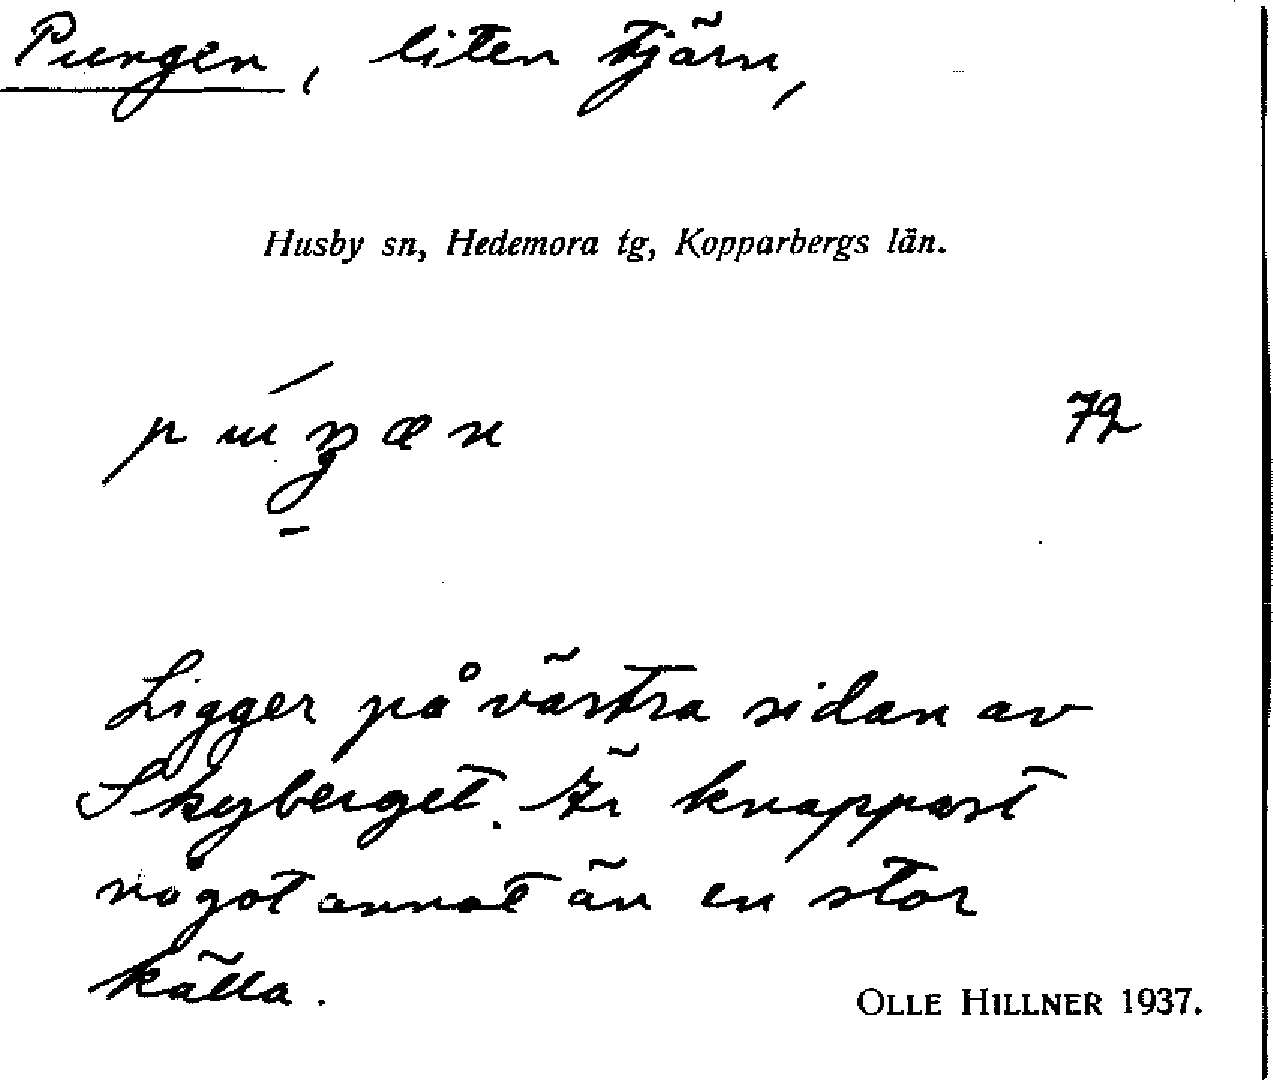 Pungen, liten tjärn,
Husby sn, Hedemora tg, Kopparbergs län.
72
Ligger på västra sidan av
Skyberget. Är knappast
något annat än en stor
källa.
OLLE HILLNER 1937.